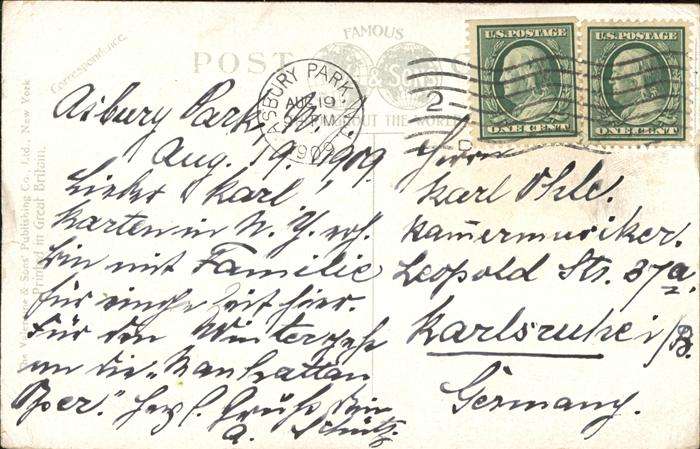 Correspondence.
POST
FAMOUS
& SONS
THROUGHOUT THE WORLD
The Valentine & Sons' Publishing Co., Ltd., New York
Printed in Great Britain.
ASBURY PARK, N.J.
AUG 19
PM
1909
2
U.S. POSTAGE
ONE CENT
U.S. POSTAGE
ONE CENT
Asbury Park N. J.
Aug. 19. 1909
Lieber Karl,
Karten in N. Y. erh.
bin mit Familie
für einige Zeit hier.
Für den Winter gehe
an die „Manhattan
Oper." Herzl. Gruß Dein
A. Schütz.
Herrn
Karl Ohle.
Kamermusiker.
Leopold Str. 37a.
Karlsruhe i/B
Germany.